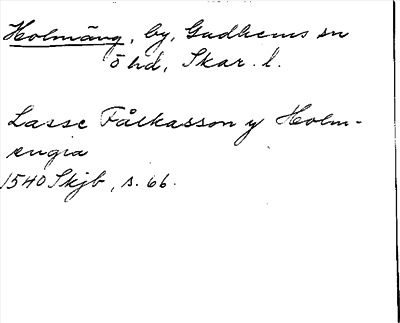 Holmäng, by, Gudhems sn
ö hd, Skar. l.
Lasse Fålkasson y Holm-
ængia
1540 Skjb, s. 66.